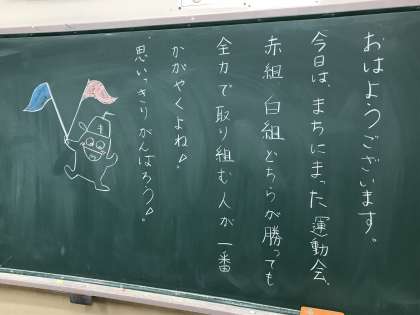 おはようございます。
今日は、まちにまった運動会、
赤組 白組どちらが勝っても
全力で取り組む人が一番
かがやくよね!
思いっきりがんばろう!